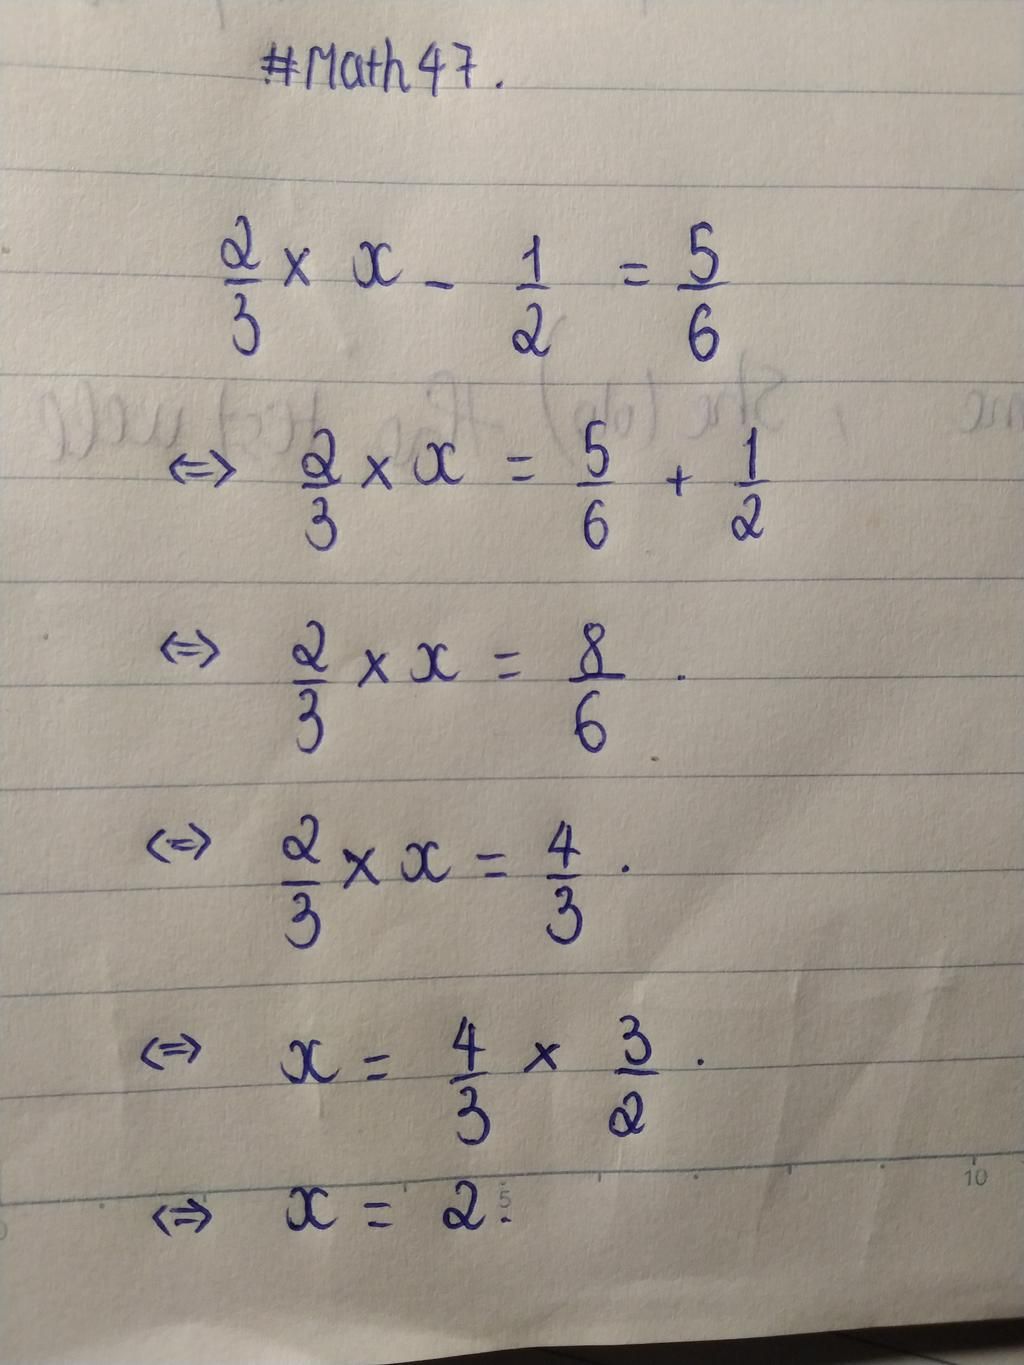 #Math47.
2/3 × x - 1/2 = 5/6
<=> 2/3 × x = 5/6 + 1/2
<=> 2/3 × x = 8/6 .
<=> 2/3 × x = 4/3 .
<=> x = 4/3 × 3/2 .
5 10
<=> x = 2.